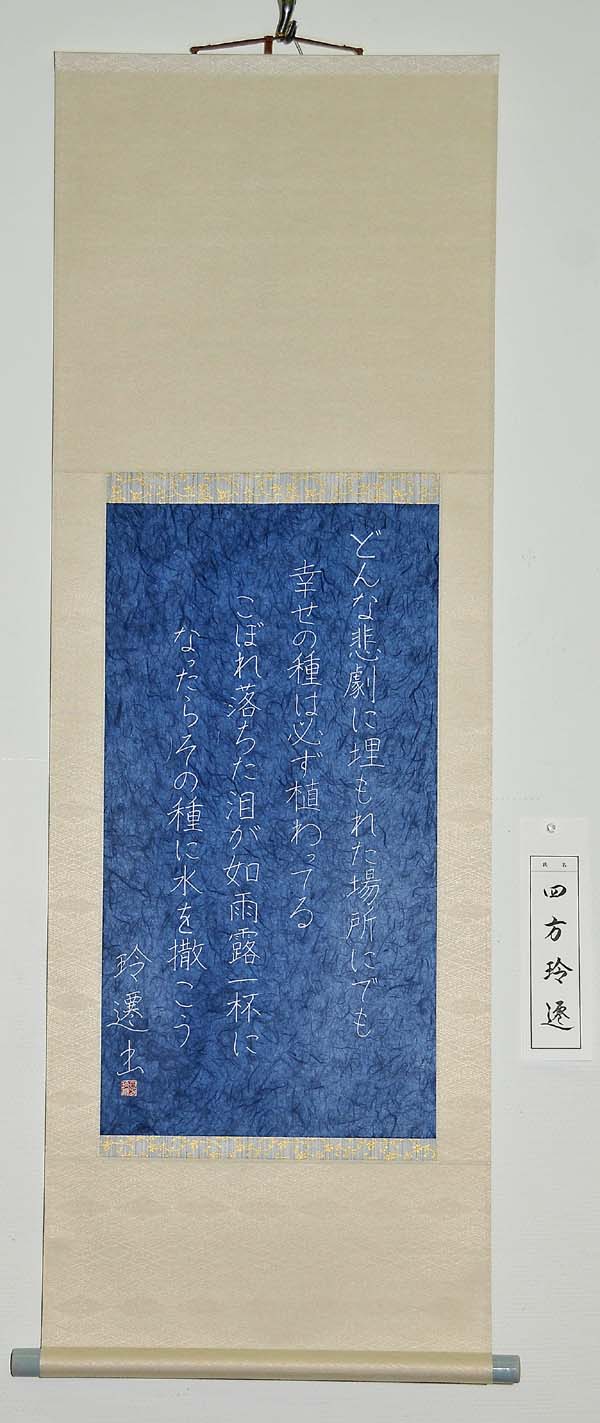 どんな悲劇に埋もれた場所にでも
幸せの種は必ず植わってる
こぼれ落ちた泪が如雨露一杯に
なったらその種に水を撒こう
玲遷书
氏名
四方玲遷